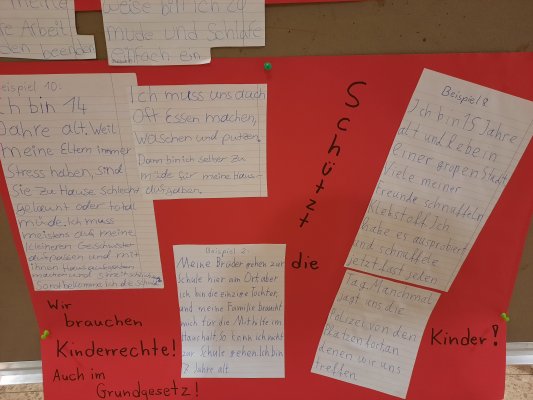 meine
Arbeit
den beenden
weise bin ich zu
müde und schlafe
einfach ein
Beispiel 10:
Ich bin 14
Jahre alt. Weil
meine Eltern immer
Stress haben, sind
sie zu Hause schlecht
gelaunt oder total
müde. Ich muss
meistens auf meine
kleineren Geschwister
aufpassen und mit
ihnen Hausaufgaben
machen und
Sonst bekomme ich die Schuld
Ich muss uns auch
oft Essen machen,
waschen und putzen.
Dann bin ich selber zu
müde für meine Haus-
aufgaben.
Beispiel 2:
Meine Brüder gehen zur
Schule hier am Ort aber
ich bin die einzige Tochter,
und meine Familie braucht
mich für die Mithilfe im
Haushalt. So kann ich nicht
zur Schule gehen. Ich bin
7 Jahre alt
Schützt
die
Kinder!
Beispiel 8
Ich bin 15 Jahre
alt und lebe in
einer großen Stadt
Viele meiner
Freunde schnüffeln
Klebstoff. Ich
habe es ausprobiert
und schnüffele
jetzt fast jeden
Tag. Manchmal
jagt uns die
Polizei von den
Plätzen fort, an
denen wir uns
treffen
Wir
brauchen
Kinderrechte!
Auch im
Grundgesetz!